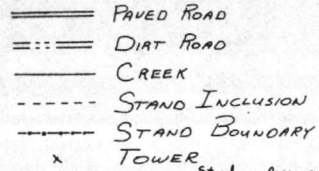 PAVED ROAD
DIRT ROAD
CREEK
STAND INCLUSION
STAND BOUNDARY
x TOWER